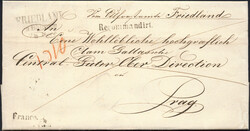 FRIEDLAND
Vom Oberamte Friedland
Recommandirt.
An
Eine Wohllöbliche hochgräflich
Clam Gallas'sche
Central Güter Ober Direction
in
Prag
Franco.